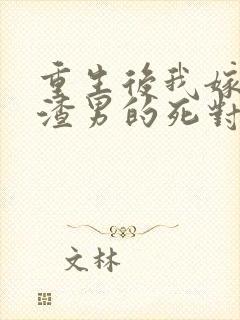 重生後我嫁
渣男的死對
文林